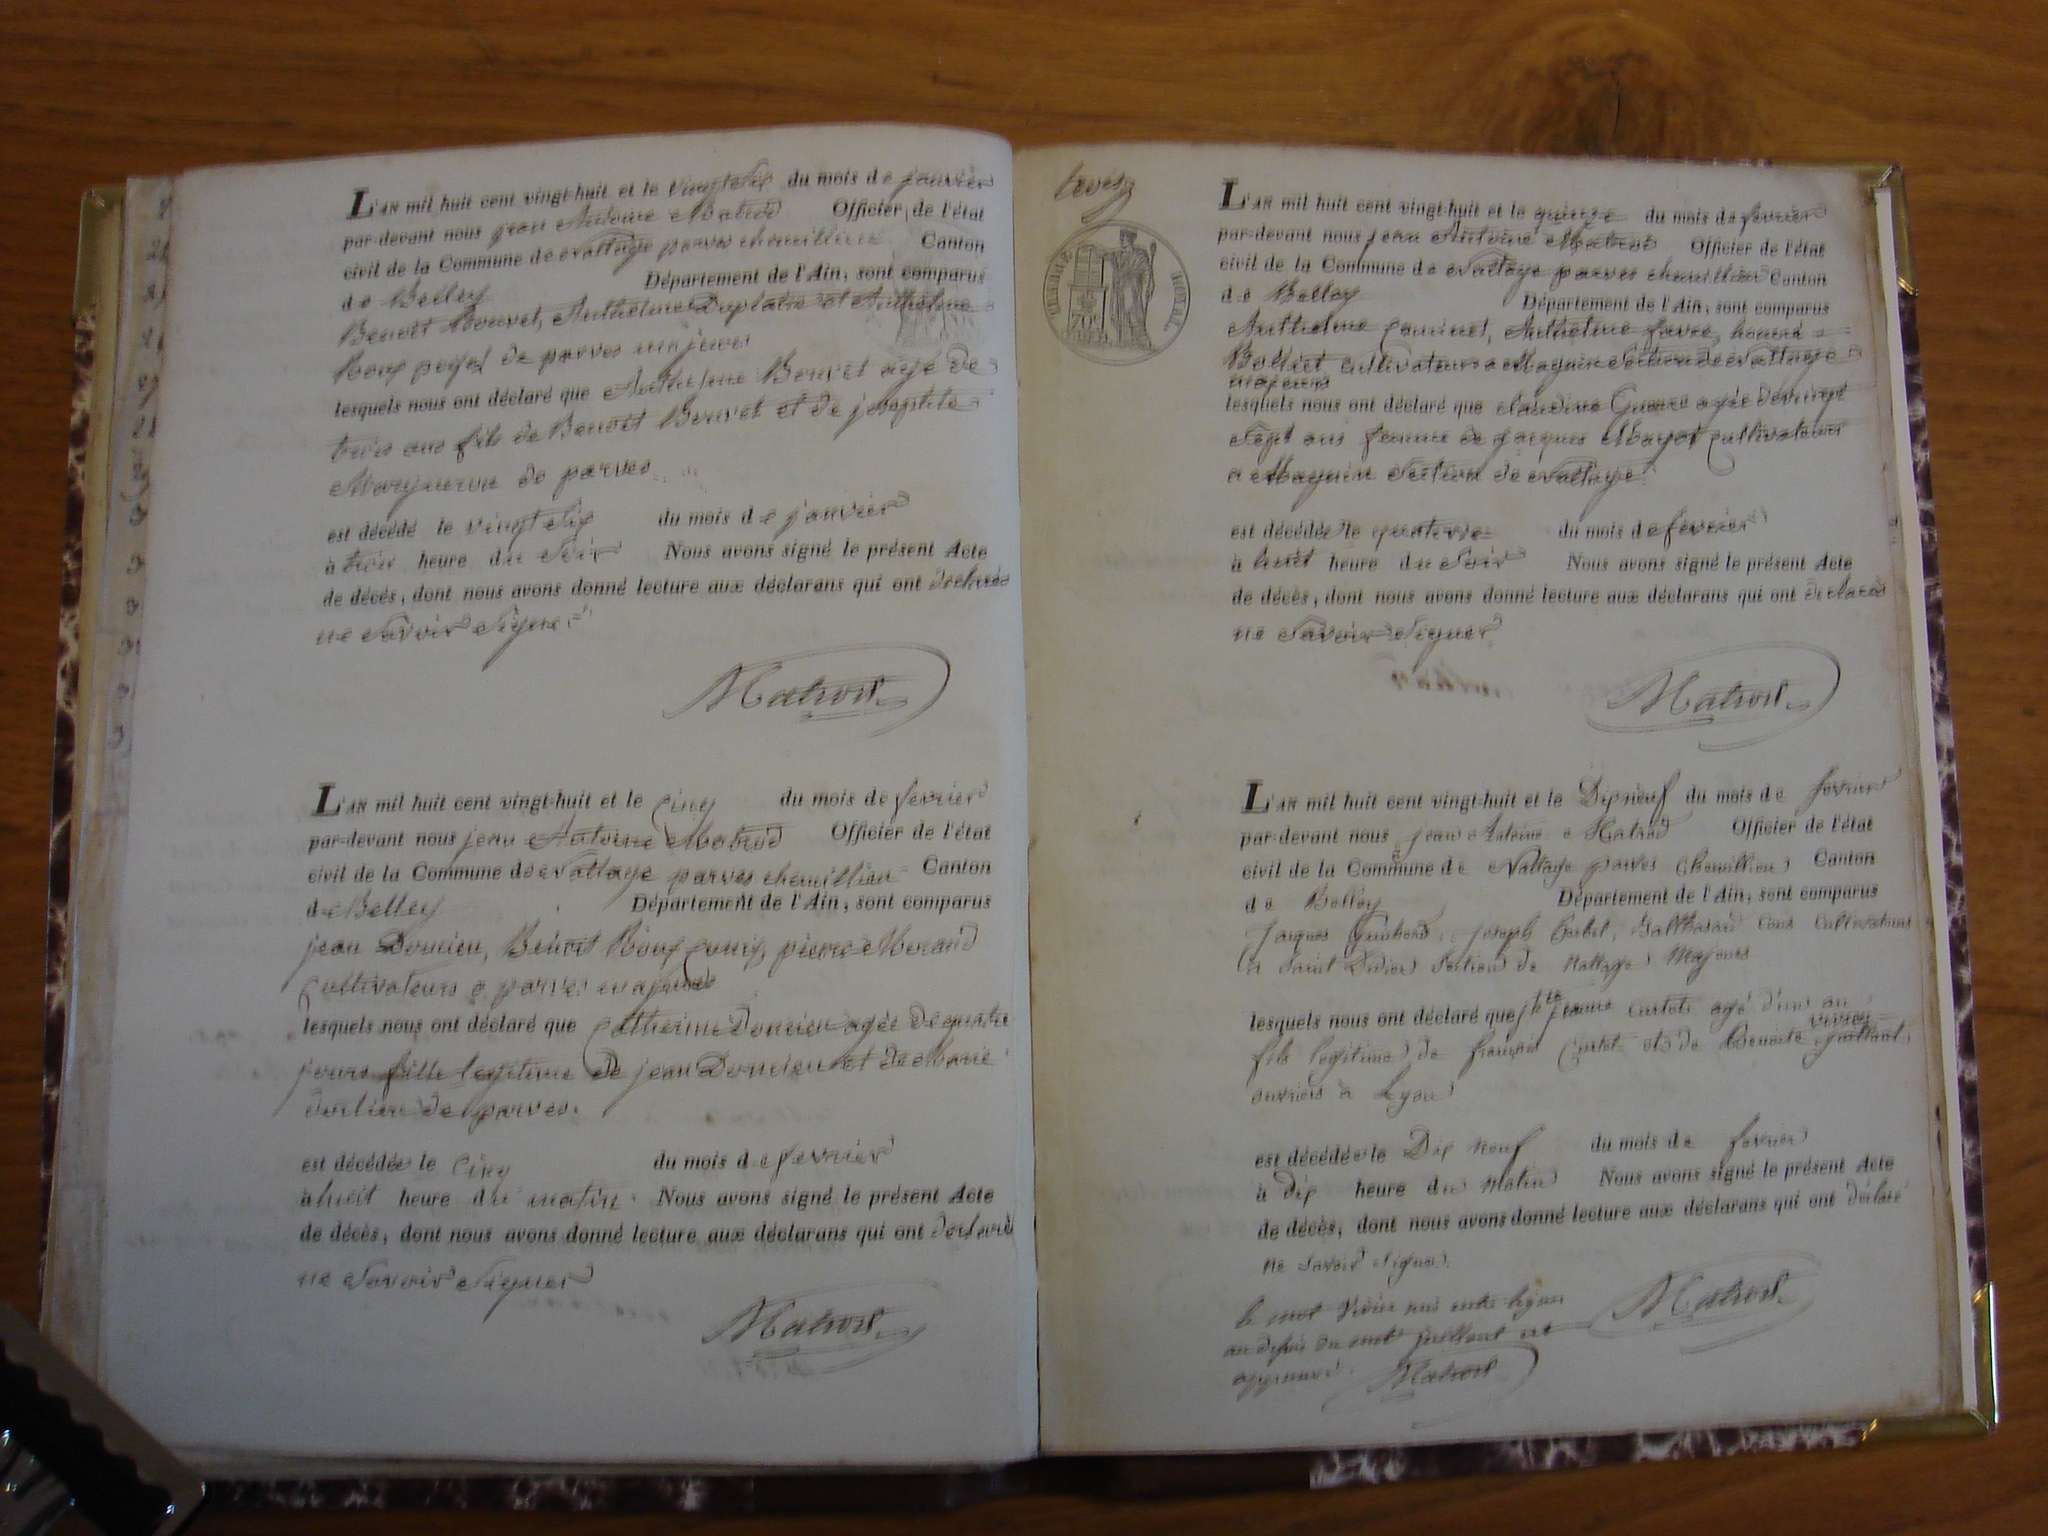 L'AN mil huit cent vingt-huit et le vingt six du mois de janvier
par-devant nous jean Antoine Matrod Officier de l'état
civil de la Commune de Nattage parves chemillieu Canton
de Belley Département de l'Ain, sont comparus
Benoit Bouvet, Anthelme Duplatre et Anthelme
Roux de parves majeurs
lesquels nous ont déclaré que Anthelme Bouvet agé de
trois ans fils de Benoit Bouvet et de josephte
de parves
est décédé le vingt six du mois de janvier
à trois heure du Soir Nous avons signé le présent Acte
de décès, dont nous avons donné lecture aux déclarans qui ont déclarés
ne Savoir Signer
Matrod
L'AN mil huit cent vingt-huit et le Cinq du mois de fevrier
par-devant nous jean Antoine Matrod Officier de l'état
civil de la Commune de Nattage parves chemillieu Canton
de Belley Département de l'Ain, sont comparus
jean Domien, Benoit Roux pierre Morand
Cultivateurs a parves majeurs
lesquels nous ont déclaré que Catherine Domien agée de quatre
jours fille legitime de jean Domien et de Marie
de parves.
est décédée le Cinq du mois de fevrier
à huit heure du matin. Nous avons signé le présent Acte
de décès, dont nous avons donné lecture aux déclarans qui ont declaré
ne Savoir Signer
Matrod
TIMBRE ROYAL
70c
L'AN mil huit cent vingt-huit et le quinze du mois de fevrier
par-devant nous jean Antoine Matrod Officier de l'état
civil de la Commune de Nattage parves chemillieu Canton
de Belley Département de l'Ain, sont comparus
Anthelme Anthelme favre, honoré
Bolliet cultivateurs a Magnin Section de Nattage
majeurs
lesquels nous ont déclaré que claudine agée de vingt
Sept ans femme de jacques Mayot cultivateur
a Magnin Section de Nattage.
est décédée le quatorze du mois de fevrier
à huit heure du Soir Nous avons signé le présent Acte
de décès, dont nous avons donné lecture aux déclarans qui ont déclarés
ne Savoir Signer
Matrod
L'AN mil huit cent vingt-huit et le Dix neuf du mois de fevrier
par-devant nous jean Antoine Matrod Officier de l'état
civil de la Commune de Nattage parves Chemillieu Canton
de Belley Département de l'Ain, sont comparus
Jacques joseph tous Cultivateurs
a Saint Didier Section de Nattage Majeurs
lesquels nous ont déclaré que agé d'un an
vivier
fils legitime de françois et de Benoite juillant,
ouvriers à Lyon
est décédé le Dix neuf du mois de fevrier
à Dix heure du Matin Nous avons signé le présent Acte
de décès, dont nous avons donné lecture aux déclarans qui ont déclaré
ne Savoir Signer.
le mot vivier mis entre lignes
au dessus du mot juillant est
approuvé.
Matrod
Matrod